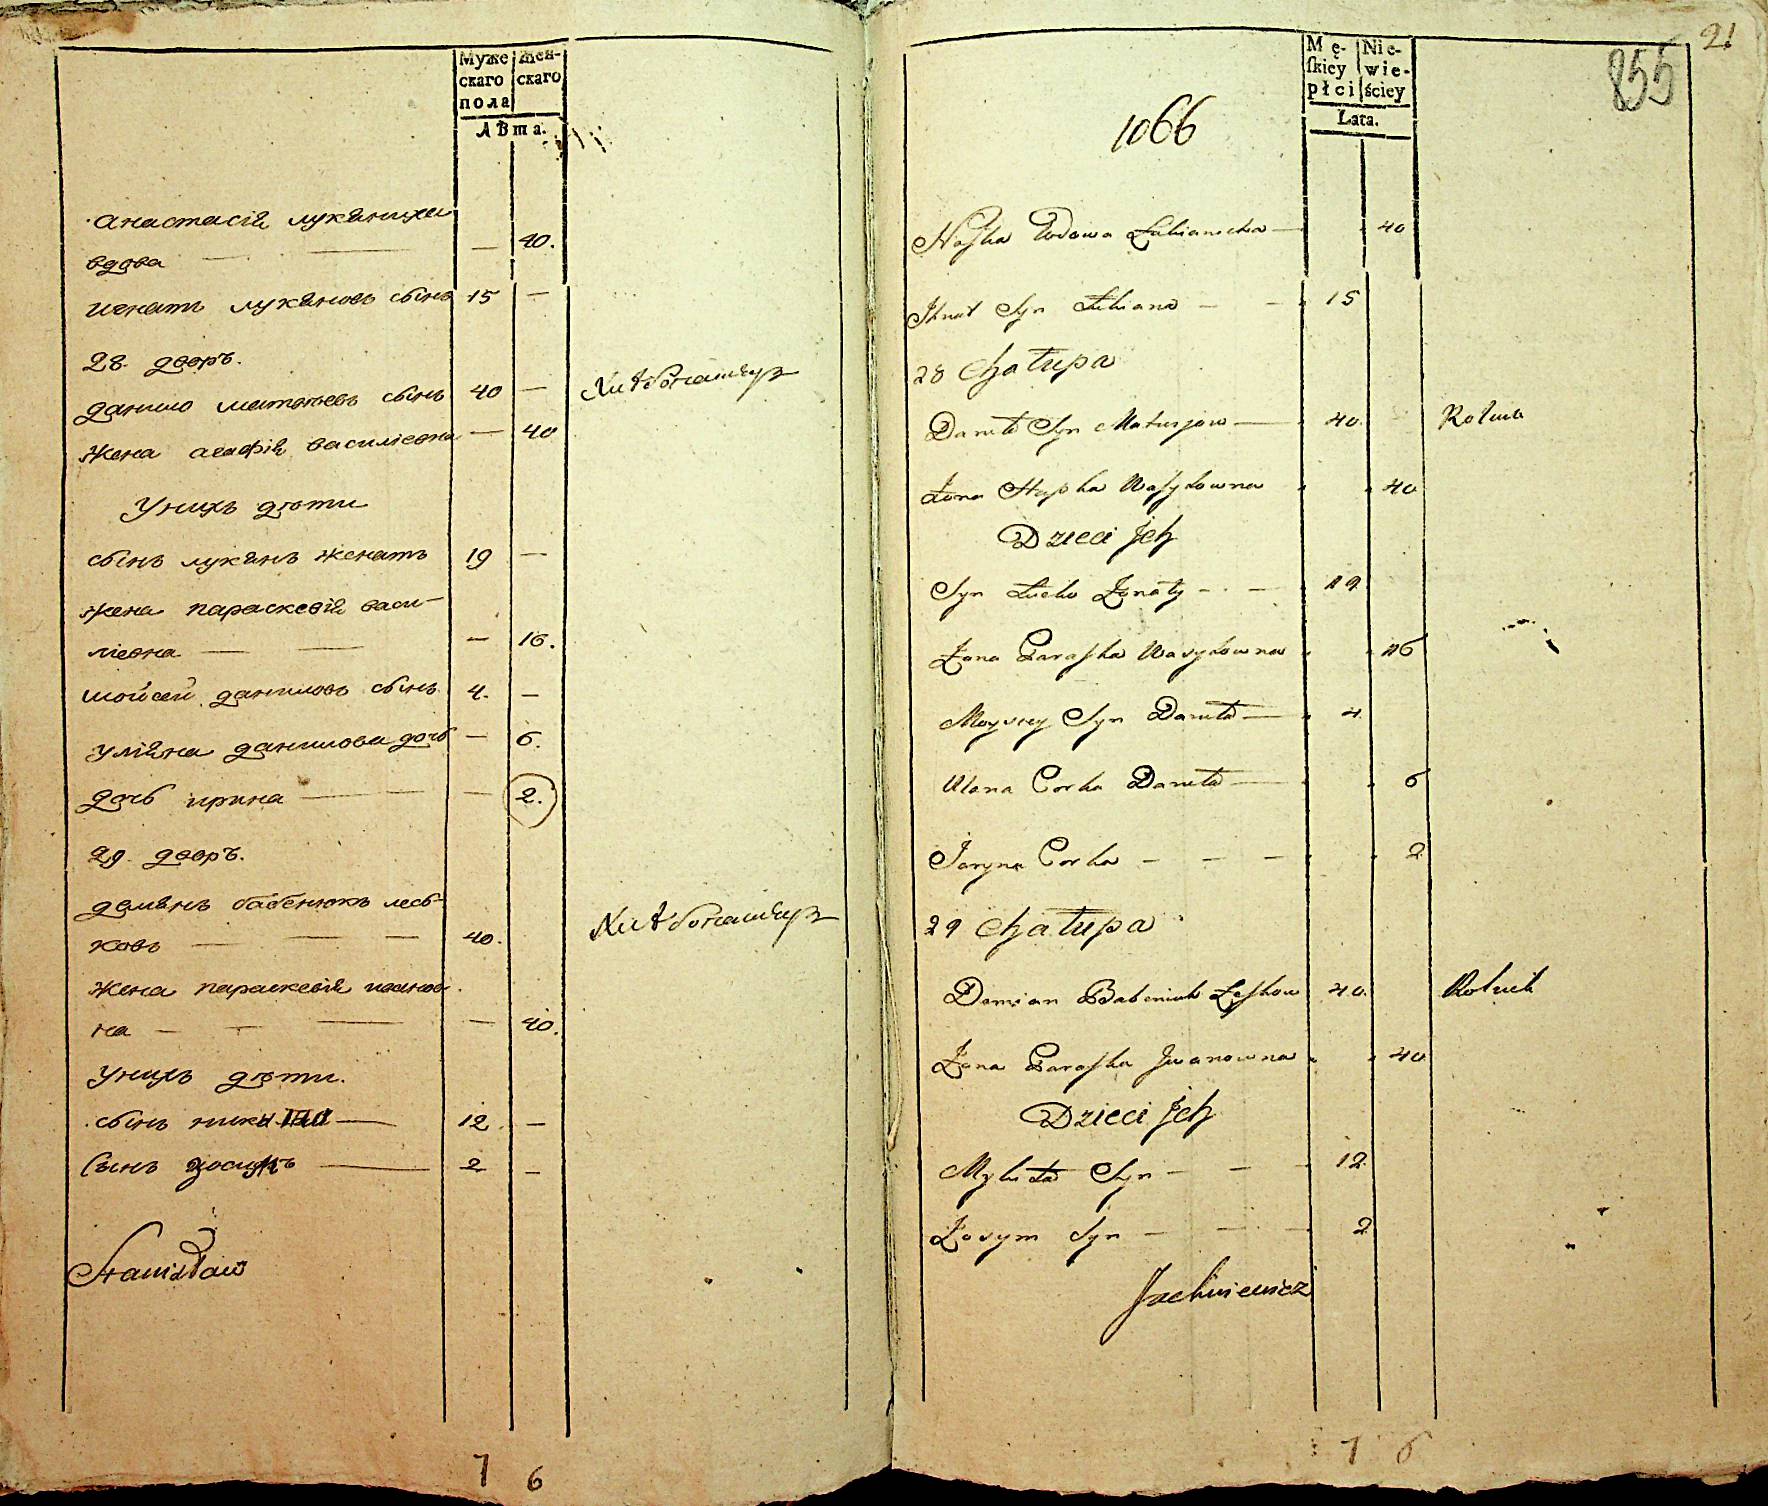 Муже
скаго
пола
Жен-
скаго
ЛѢта.
анастасія лукяниха
вдова — — — 40.
игнатъ лукяновъ сынъ 15 —
28. дворъ.
данило матвѣевъ сынъ 40 — Хлѣбопашецъ
жена агафія василіевна — 40
У нихъ дѣти
сынъ лукянъ женатъ 19 —
жена параскевія васи-
ліевна — — — 16.
мойсей даниловъ сынъ 4. —
уліяна данилова дочь — 6.
дочь ирина — — — 2.
29. дворъ.
демянъ бабенюкъ лесь-
ковъ — — — 40. Хлѣбопашецъ
жена параскевія иванов-
на — — — — 40.
У нихъ дѣти.
сынъ микита — 12 —
Сынъ зосимъ — 2 —
Stanisław
7 6
21
855
1066
Mę-
skiey
płci
Nie-
wie-
ściey
Lata.
Nastka Wdowa Łukianicha — 40
Ihnat Syn Łukiana — — 15
28 Chałupa
Daniło Syn Matwijow — 40 Rolnik
Żona Hapka Wasylowna 40
Dzieci Jch
Syn Łucko Żonaty - - — 19
Żona Paraska Wasylowna 16
Moysiey Syn Daniła — 4
Ulana Corka Daniła — 6
Jaryna Corka — — — 2
29 Chałupa
Demian Babeniuk Leskow 40. Rolnik
Żona Paraska Jwanowna 40
Dzieci Jch
Mykita Syn — — - 12
Zosym Syn — — — 2
Jachniewicz
7 6